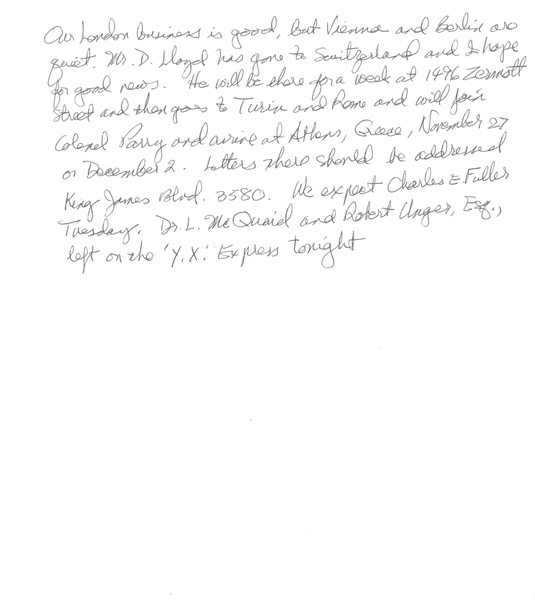 Our London business is good, but Vienna and Berlin are
quiet. Mr. D. Lloyd has gone to Switzerland and I hope
for good news. He will be there for a week at 1496 Zermott
Street and then goes to Turin and Rome and will join
Colonel Parry and arrive at Athens, Greece, November 27
or December 2. Letters there should be addressed
King James Blvd. 3580. We expect Charles E Fuller
Tuesday. Dr. L. McQuaid and Robert Unger, Esq.,
left on the 'Y.X.' Express tonight